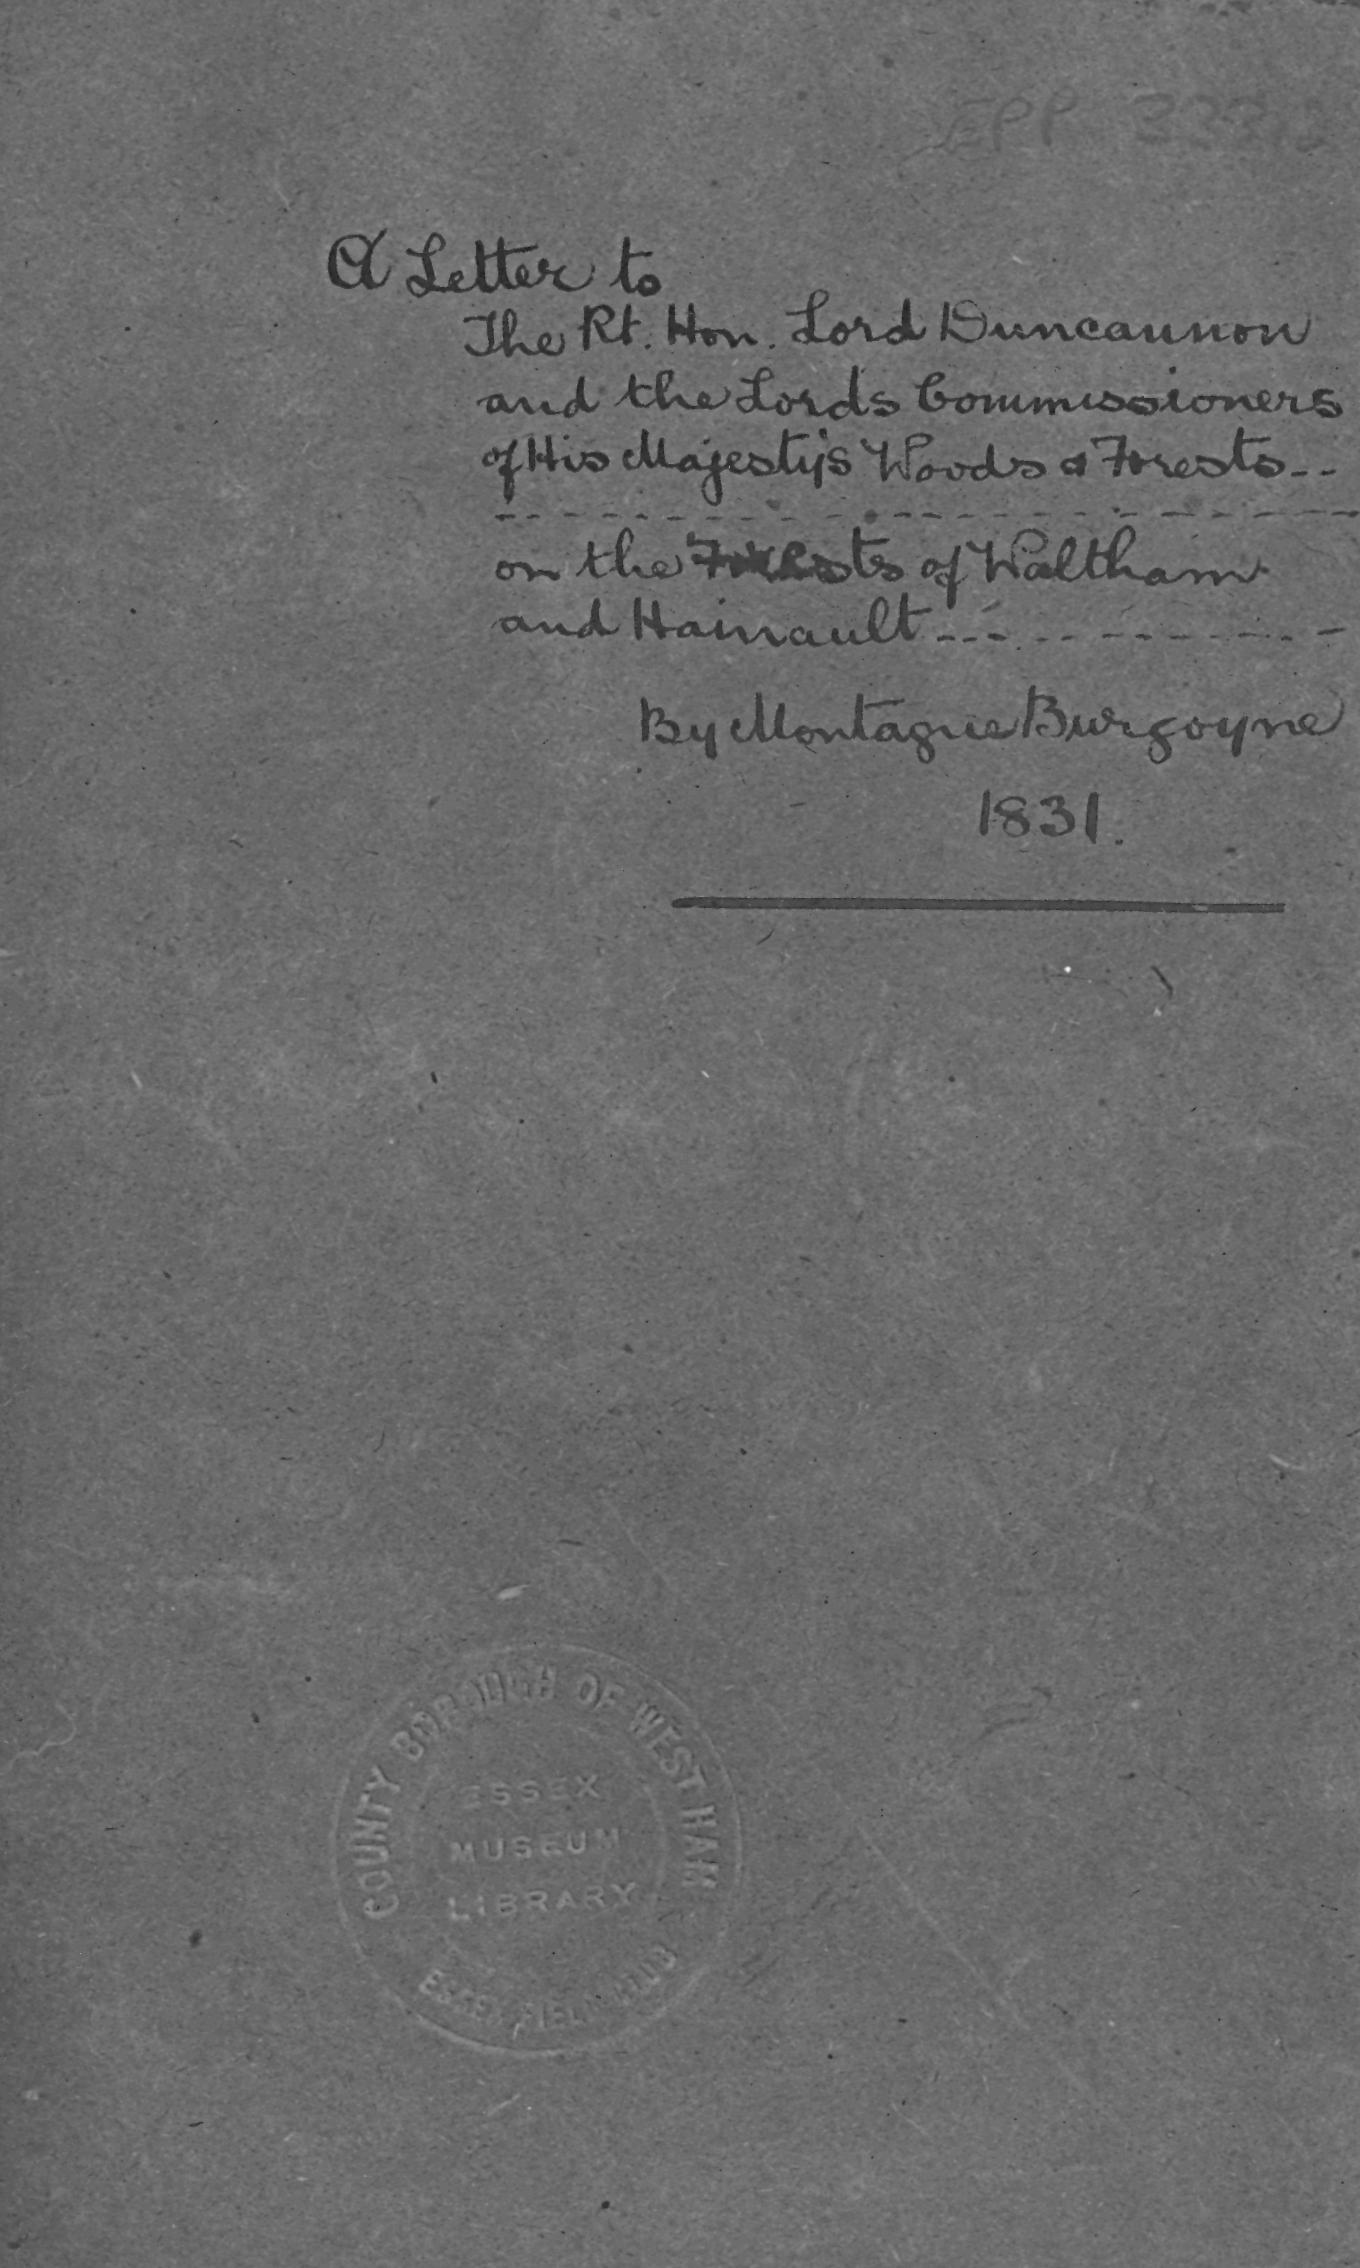 EPP 333.
A Letter to
The Rt. Hon. Lord Duncannon
and the Lords Commissioners
of His Majesty's Woods & Forests--
on the Forests of Waltham
and Hainault
By Montague Burgoyne
1831.
COUNTY BOROUGH OF WEST HAM
ESSEX
MUSEUM
LIBRARY
ESSEX FIELD CLUB